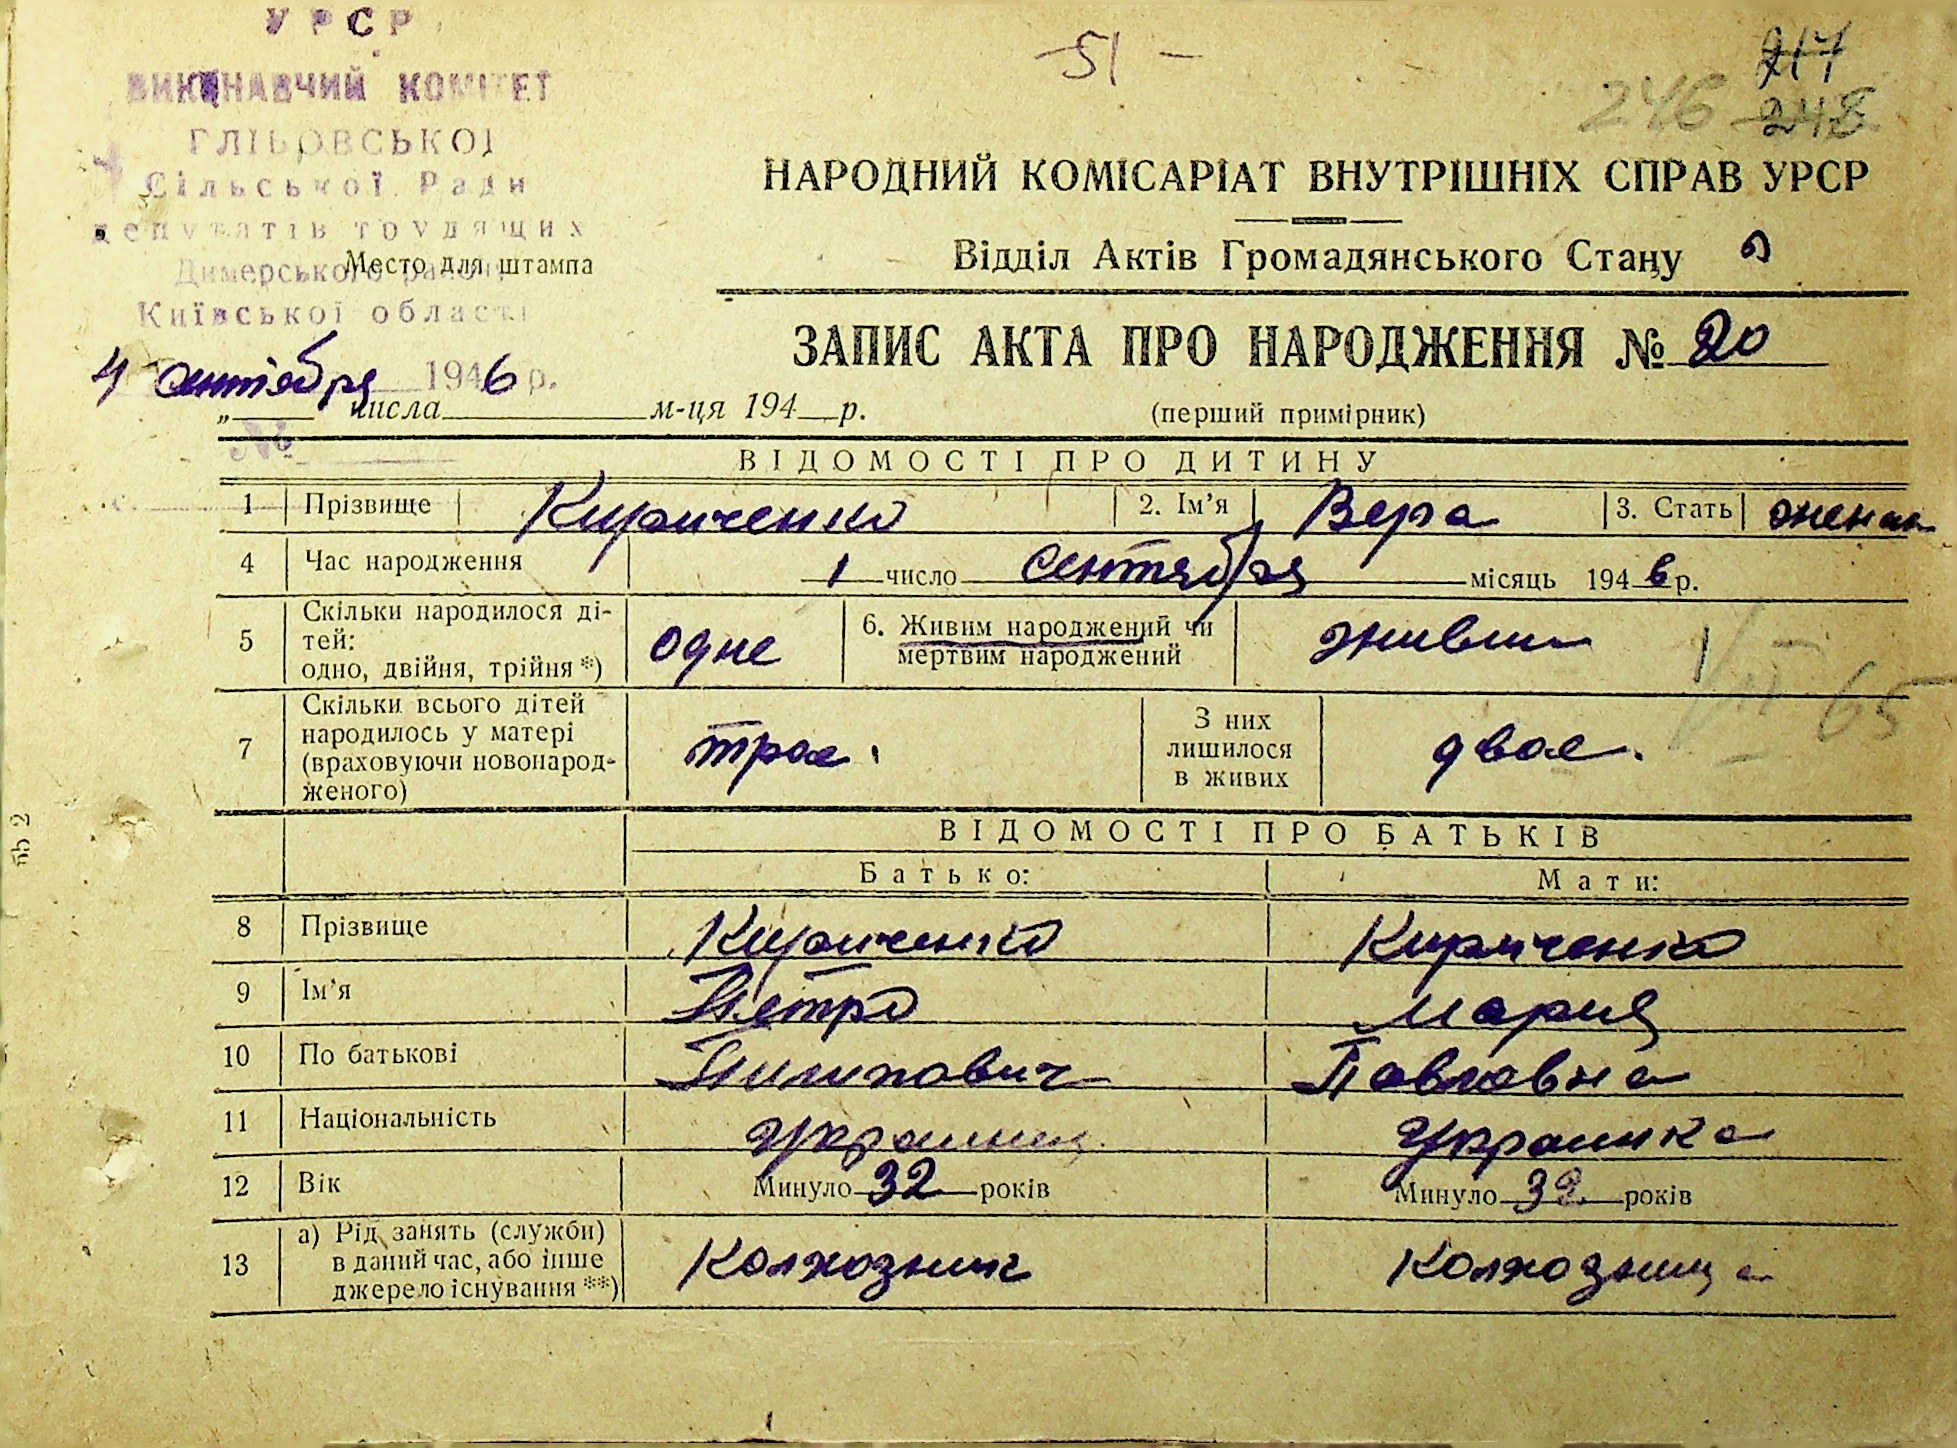 УРСР
ВИКОНАВЧИЙ КОМІТЕТ
ГЛІБОВСЬКОЇ
Сільської Ради
депутатів трудящих
Димерського району
Київської області
Место для штампа
4 сентября 1946 р.
№
„ числа м-ця 194 р.
51 -
217
246 248
НАРОДНИЙ КОМІСАРІАТ ВНУТРІШНІХ СПРАВ УРСР
Відділ Актів Громадянського Стану
ЗАПИС АКТА ПРО НАРОДЖЕННЯ № 20
(перший примірник)
ВІДОМОСТІ ПРО ДИТИНУ
1 Прізвище Кириченко 2. Ім'я Вера 3. Стать женск
4 Час народження 1 число сентября місяць 1946 р.
5 Скільки народилося ді-
тей:
одно, двійня, трійня *) одне 6. Живим народжений чи
мертвим народжений живым
7 Скільки всього дітей
народилось у матері
(враховуючи новонарод-
женого) трое. З них
лишилося
в живих двое.
VII 65
ВІДОМОСТІ ПРО БАТЬКІВ
Батько: Мати:
8 Прізвище Кириченко Кириченко
9 Ім'я Петро Мария
10 По батькові Пилипович Павловна
11 Національність Украинец Украинка
12 Вік Минуло 32 років Минуло 32 років
13 а) Рід занять (служби)
в даний час, або інше
джерело існування **) Колхозник Колхозница